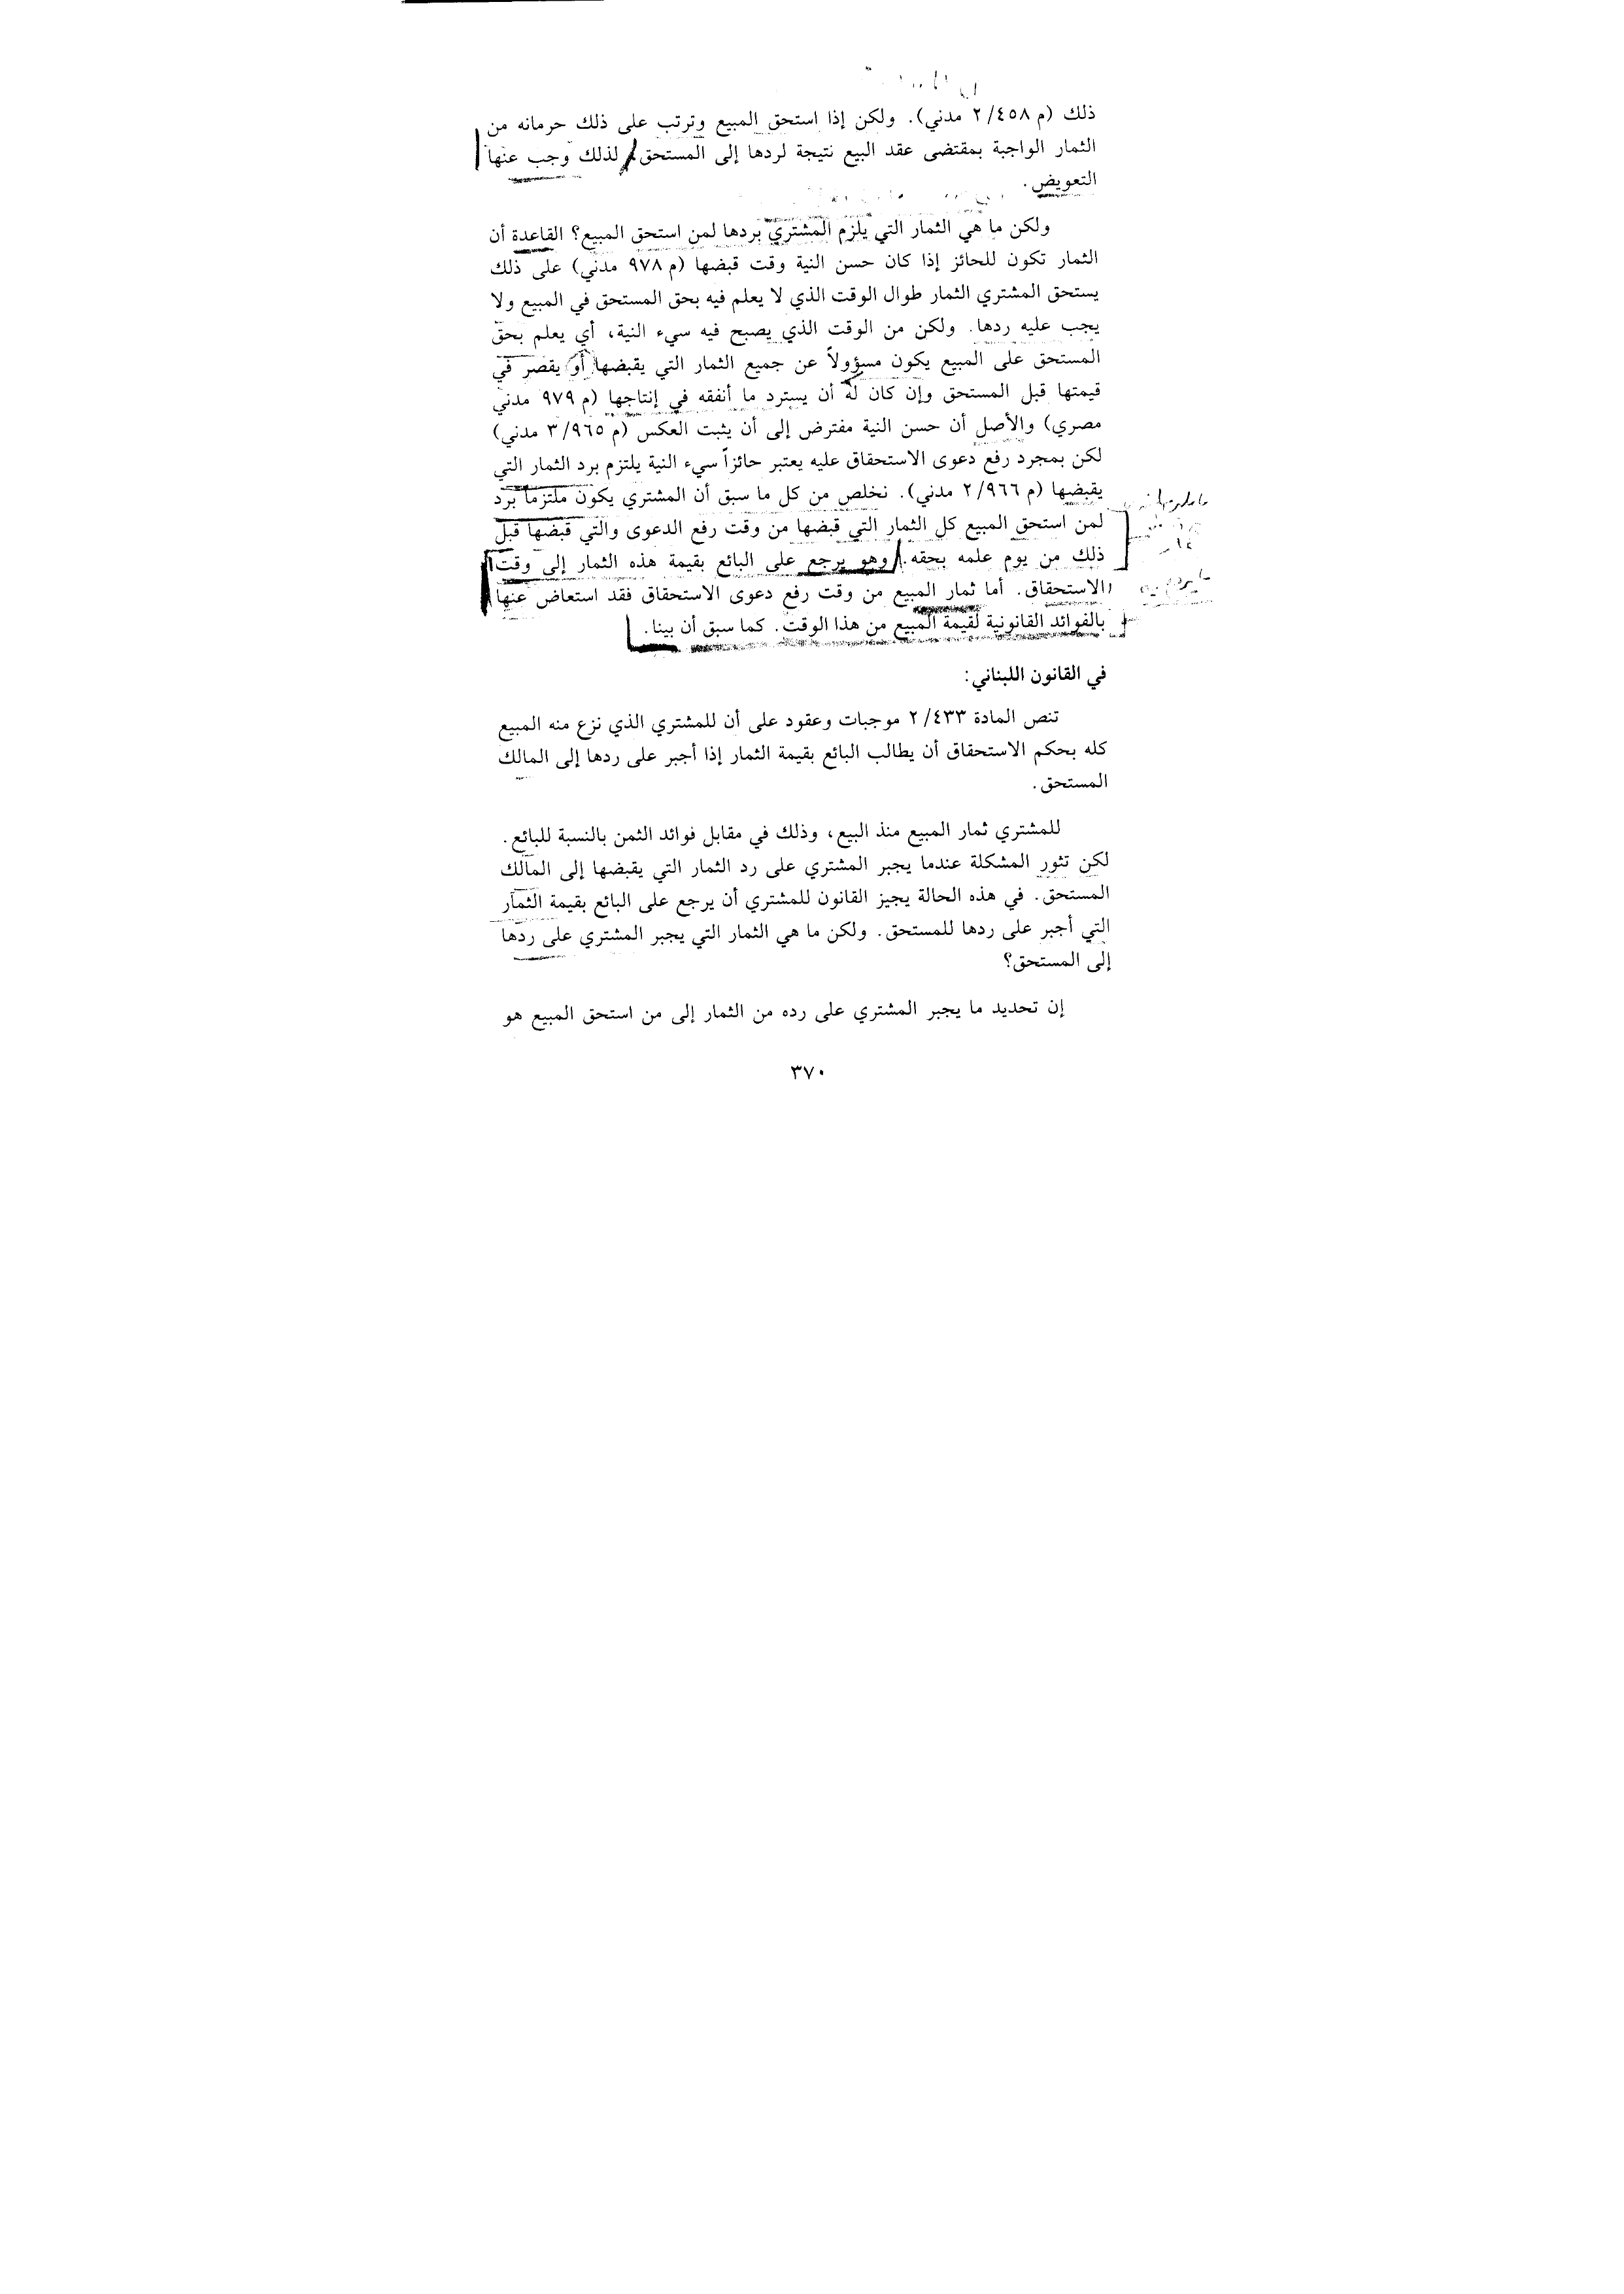 ذلك (م ٤٥٨/ ٢ مدني). ولكن إذا استحق المبيع وترتب على ذلك حرمانه من
الثمار الواجبة بمقتضى عقد البيع نتيجة لردها إلى المستحق. لذلك وجب عنها
التعويض.
ولكن ما هي الثمار التي يلزم المشتري بردها لمن استحق المبيع؟ القاعدة أن
الثمار تكون للحائز إذا كان حسن النية وقت قبضها (م ٩٧٨ مدني) على ذلك
يستحق المشتري الثمار طوال الوقت الذي لا يعلم فيه بحق المستحق في المبيع ولا
يجب عليه ردها. ولكن من الوقت الذي يصبح فيه سيء النية، أي يعلم بحق
المستحق على المبيع يكون مسؤولاً عن جميع الثمار التي يقبضها أو يقصر في
قيمتها قبل المستحق وإن كان له أن يسترد ما أنفقه في إنتاجها (م ٩٧٩ مدني
مصري) والأصل أن حسن النية مفترض إلى أن يثبت العكس (م ٩٦٥/ ٣ مدني)
لكن بمجرد رفع دعوى الاستحقاق عليه يعتبر حائزاً سيء النية يلتزم برد الثمار التي
يقبضها (م ٩٦٦/ ٢ مدني). نخلص من كل ما سبق أن المشتري يكون ملتزماً برد
لمن استحق المبيع كل الثمار التي قبضها من وقت رفع الدعوى والتي قبضها قبل
ذلك من يوم علمه بحقه. وهو يرجع على البائع بقيمة هذه الثمار إلى وقت
الاستحقاق. أما ثمار المبيع من وقت رفع دعوى الاستحقاق فقد استعاض عنها
بالفوائد القانونية لقيمة المبيع من هذا الوقت. كما سبق أن بينا.
في القانون اللبناني:
تنص المادة ٤٣٣/ ٢ موجبات وعقود على أن للمشتري الذي نزع منه المبيع
كله بحكم الاستحقاق أن يطالب البائع بقيمة الثمار إذا أجبر على ردها إلى المالك
المستحق.
للمشتري ثمار المبيع منذ البيع، وذلك في مقابل فوائد الثمن بالنسبة للبائع.
لكن تثور المشكلة عندما يجبر المشتري على رد الثمار التي يقبضها إلى المالك
المستحق. في هذه الحالة يجيز القانون للمشتري أن يرجع على البائع بقيمة الثمار
التي أجبر على ردها للمستحق. ولكن ما هي الثمار التي يجبر المشتري على ردها
إلى المستحق؟
إن تحديد ما يجبر المشتري على رده من الثمار إلى من استحق المبيع هو
٣٧٠